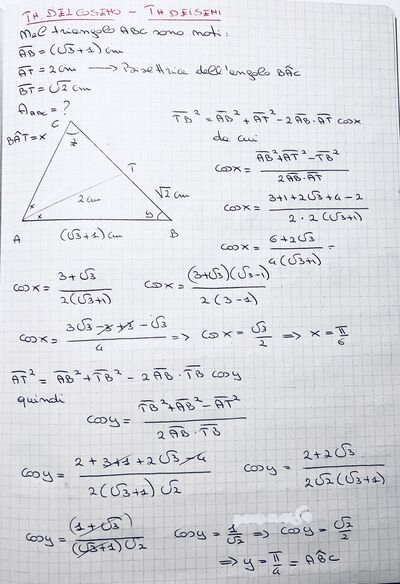 TH. DEL COSENO - TH DEI SENI
Nel triangolo ABC sono noti:
A̅B̅ = (√3+1) cm
A̅T̅ = 2 cm → Bisettrice dell'angolo BÂC
B̅T̅ = √2 cm
A_ABC = ?
BÂT = x
C
z
T
√2 cm
2 cm
x
x
y
A
(√3+1) cm
B
T̅B̅² = A̅B̅² + A̅T̅² - 2A̅B̅·A̅T̅ cosx
da cui
cosx = (A̅B̅² + A̅T̅² - T̅B̅²) / (2A̅B̅·A̅T̅)
cosx = (3+1+2√3+4-2) / (2·2(√3+1))
cosx = (6+2√3) / (4(√3+1)) =
cosx = (3+√3) / (2(√3+1)) cosx = ((3+√3)(√3-1)) / (2(3-1))
cosx = (3√3-3+3-√3) / 4 => cosx = √3/2 => x = π/6
A̅T̅² = A̅B̅² + T̅B̅² - 2A̅B̅·T̅B̅ cosy
quindi
cosy = (T̅B̅² + A̅B̅² - A̅T̅²) / (2A̅B̅·T̅B̅)
cosy = (2+3+1+2√3-4) / (2(√3+1)√2) cosy = (2+2√3) / (2√2(√3+1))
cosy = (1+√3) / ((√3+1)√2) cosy = 1/√2 => cosy = √2/2
=> y = π/4 = AB̂C